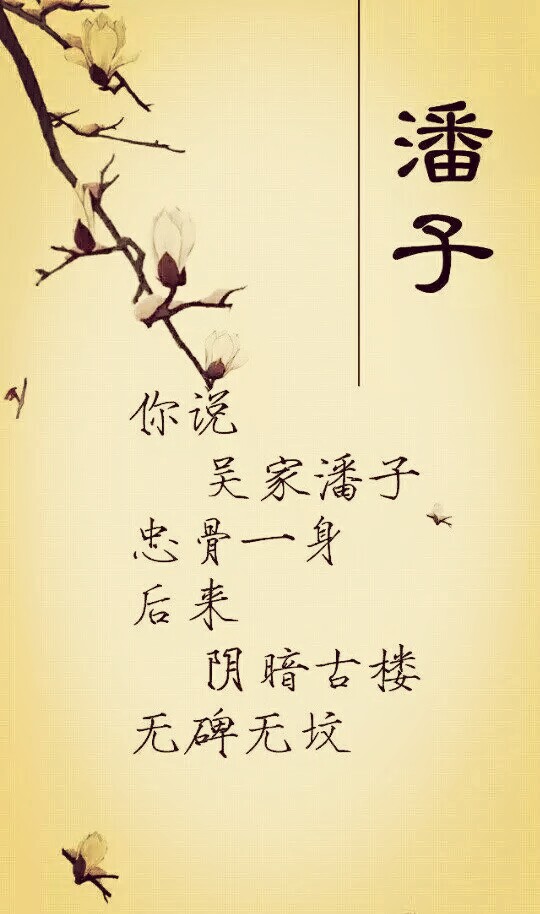 潘子
你说
吴家潘子
忠骨一身
后来
阴暗古楼
无碑无坟